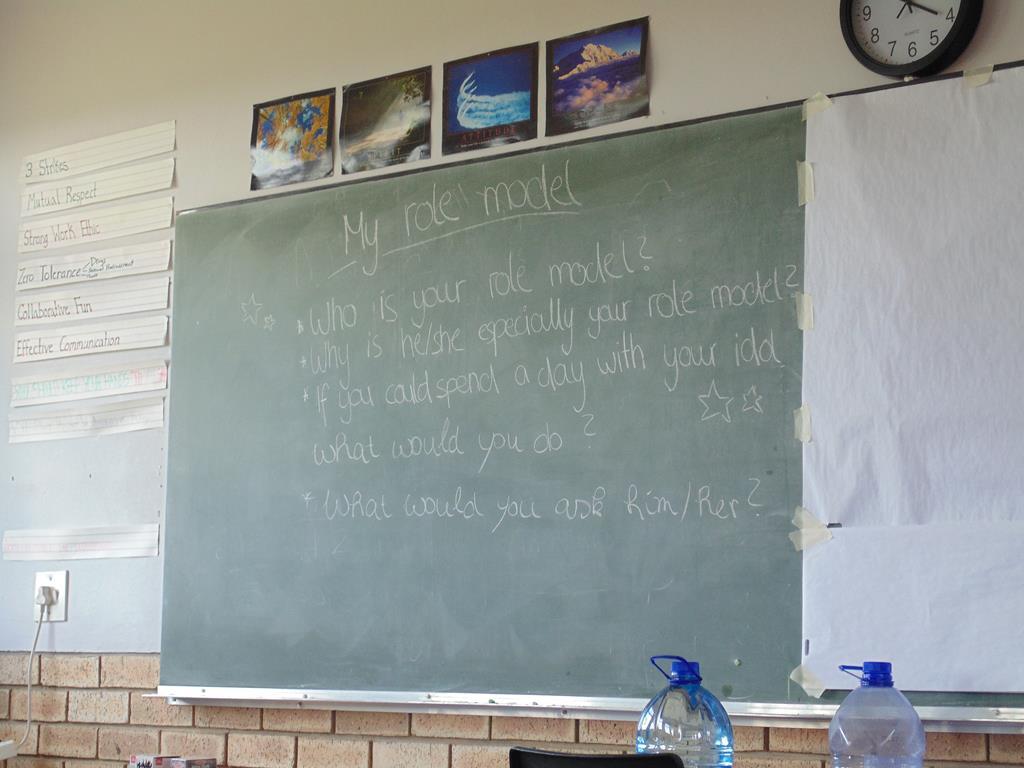 3 Strikes
Mutual Respect
Strong Work Ethic
Zero Tolerance
Collaborative Fun
Effective Communication
ATTITUDE
My role model
* Who is your role model?
* Why is he/she especially your role model?
* If you could spend a day with your idol
what would you do?
* What would you ask him/her?
9
8
7
6
5
4
QUARTZ